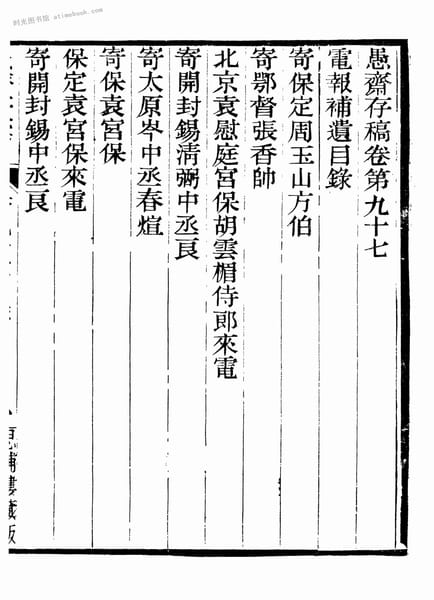 时光图书馆 atimebook.com
愚齋存稿卷第九十七
電報補遺目錄
寄保定周玉山方伯
寄鄂督張香帥
北京袁慰庭宮保胡雲楣侍郎來電
寄開封錫清弼中丞良
寄太原岑中丞春煊
寄保袁宮保
保定袁宮保來電
寄開封錫中丞良
樓藏版